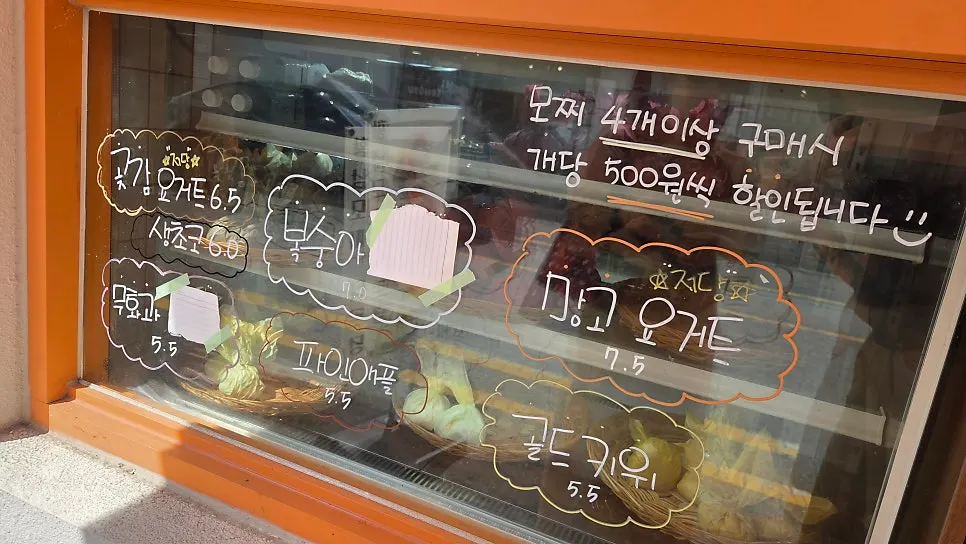 모찌 4개이상 구매시
개당 500원씩 할인됩니다
저당
곶감 요거트 6.5
생초코 6.0
복숭아
7.0
무화과
5.5
파인애플
5.5
저당
망고 요거트
7.5
골드키위
5.5